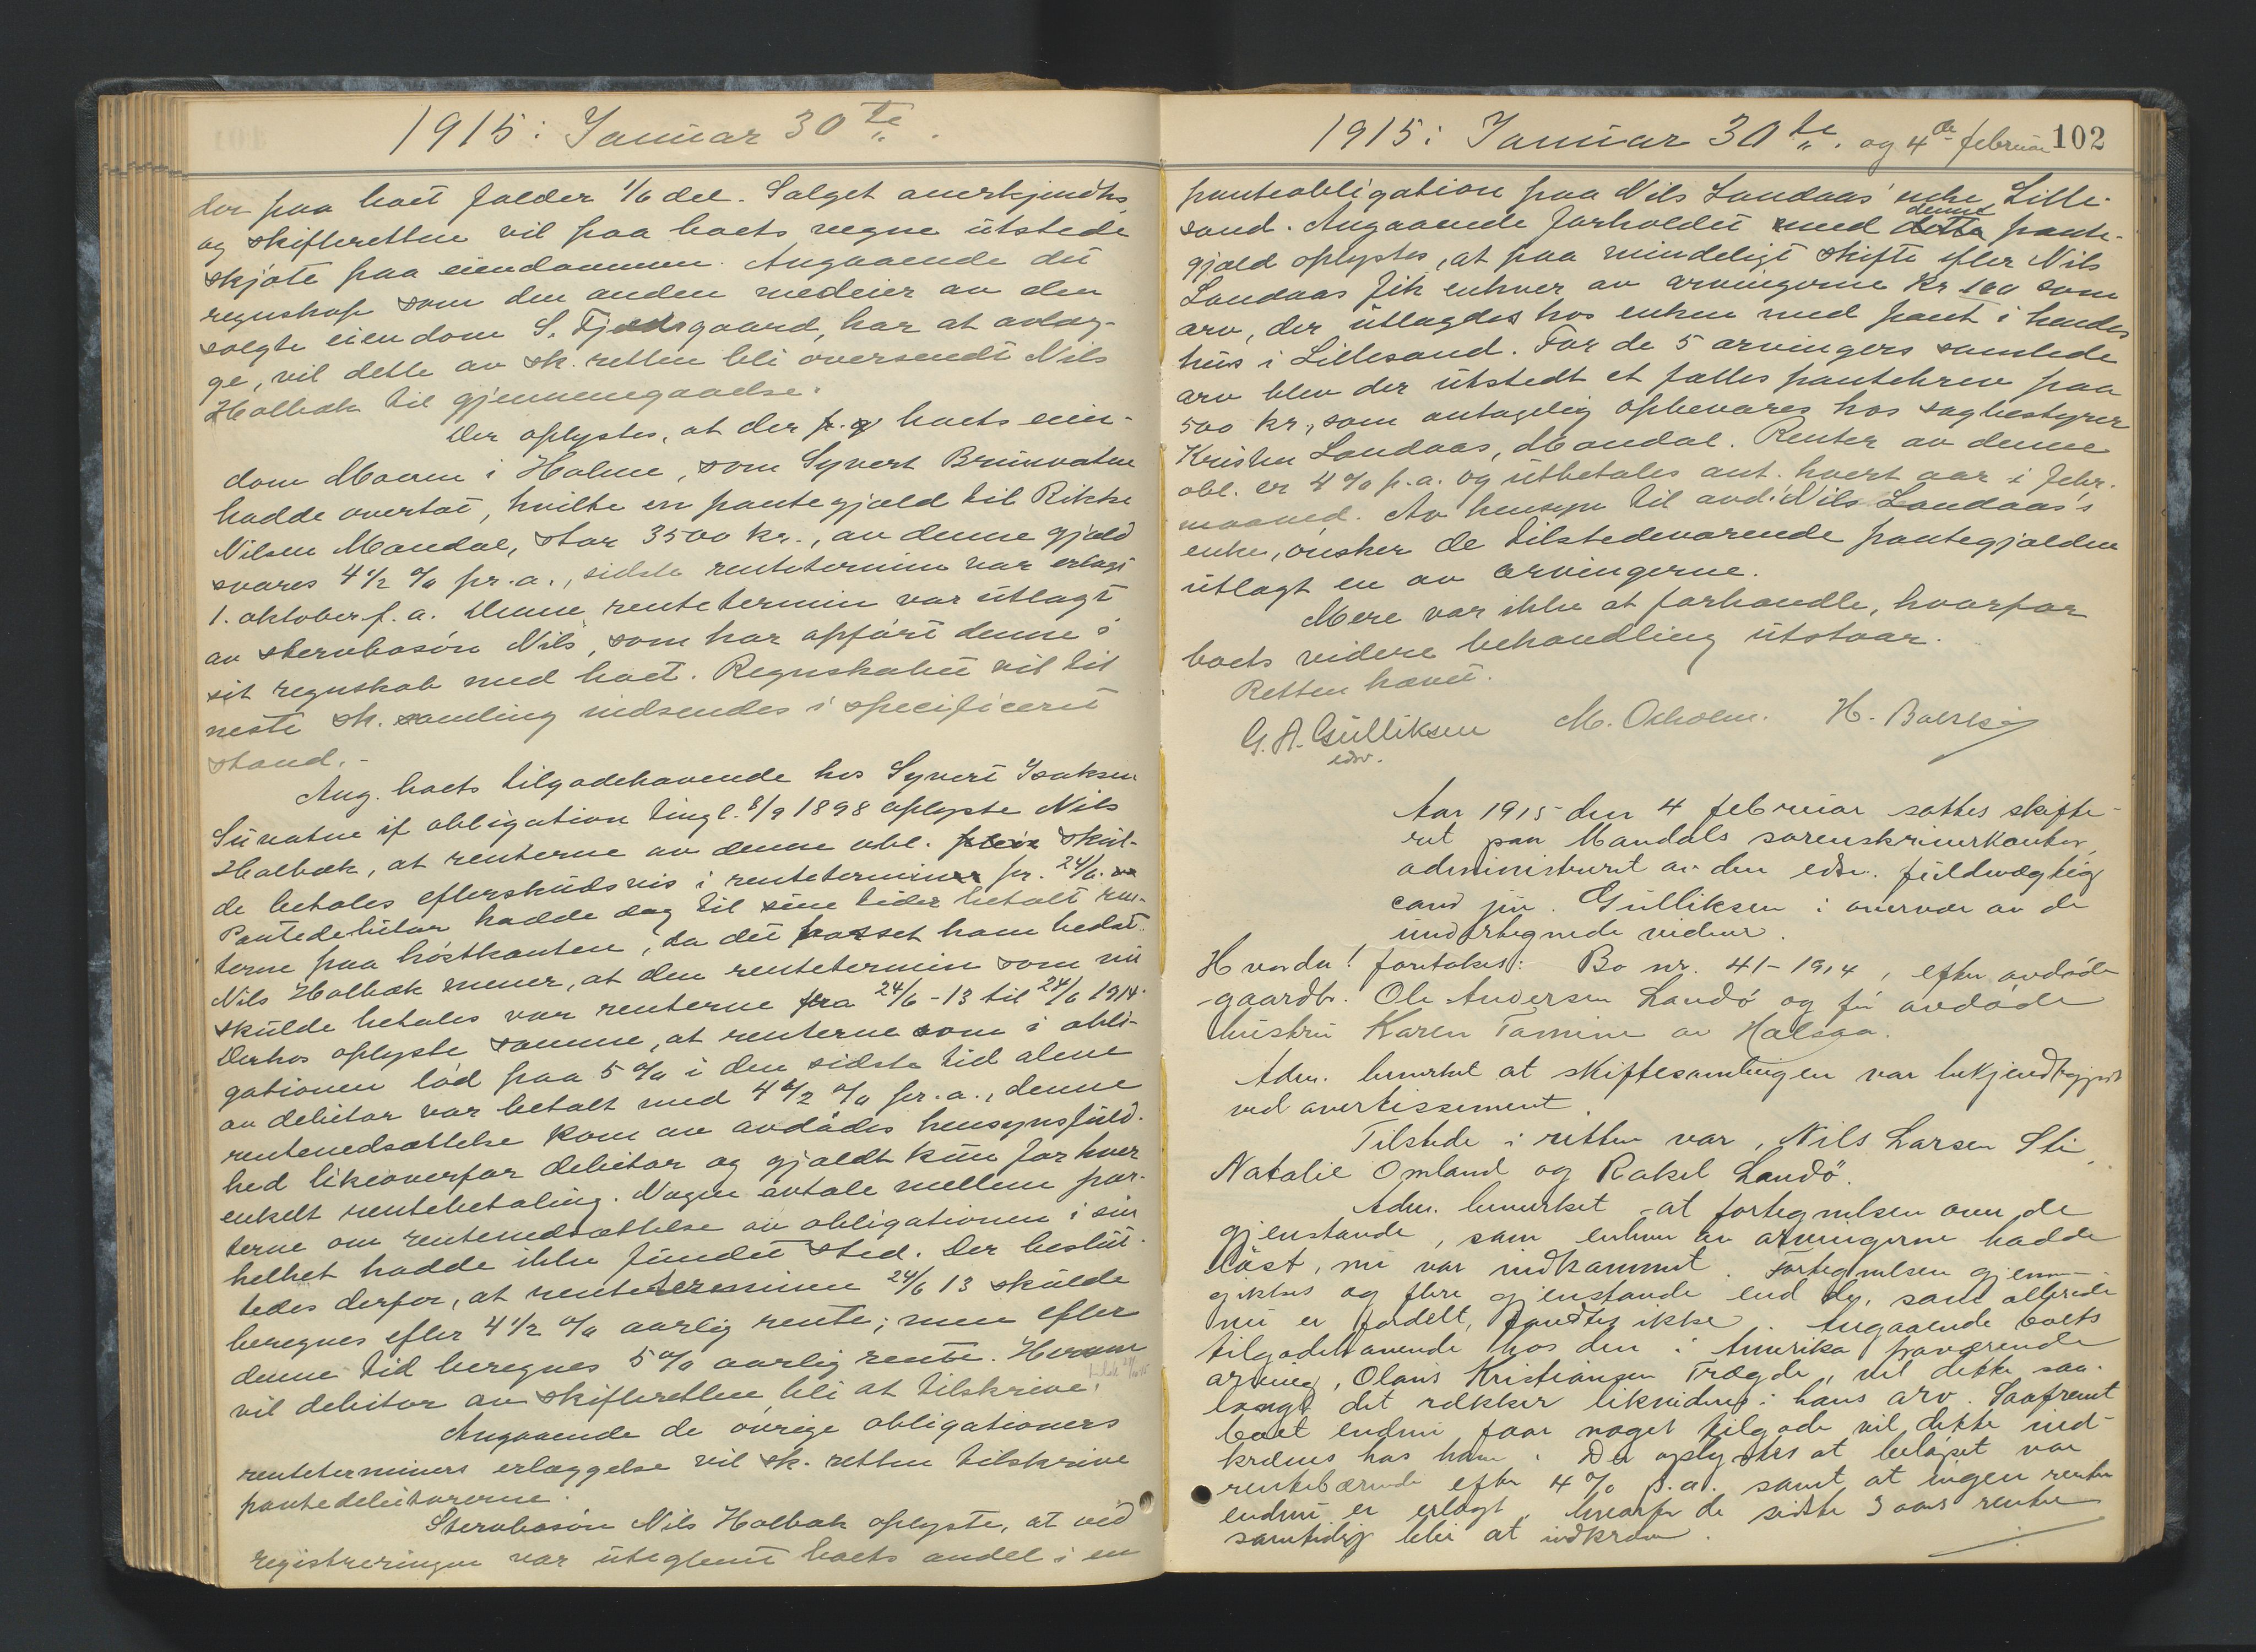 1915: Januar 30te.
der paa boet falder 1/6 del. Salget anerkjendtes
og skifteretten vil paa boets vegne utstede
skjøte paa eiendommen. Angaaende det
regnskap som den anden medeier av den
solgte eiendom S. Fjeldsgaard, har at avlæg-
ge, vil dette av sk. retten bli oversendt Nils
Holbæk til gjennemgaaelse.
Der oplystes, at der p. g. boets eien-
dom Moerne i Holme, som Syvert Brunvatne
hadde overtat, hvilte en pantegjæld til Rikke
Nilsen Mandal, stor 3500 kr., av denne gjæld
svares 4 1/2 % pr. a., sidste rentetermin var erlagt
1. oktober f. a. Denne rentetermin var utlagt
av stervbosøn Nils, som har opført denne i
sit regnskab med boet. Regnskabet vil til
neste sk. samling indsendes i specificeret
stand.-
Ang. boets tilgodehavende hos Syvert Isaksen
Suvatne if obligation tingl. 8/9 1898 oplyste Nils
Holbæk, at renterne av denne obl. skul-
de betales efterskudsvis i rentetermin pr. 24/6.
Pantedebitor hadde dog til sine tider betalt ren-
terne paa høstkanten, da det passet ham bedst.
Nils Holbæk mener, at den rentetermin som nu
skulde betales var renterne fra 24/6 - 13 til 24/6 1914.
Derhos oplyste samme, at renterne som i obli-
gationen lød paa 5 % i den sidste tid alene
av debitor var betalt med 4 1/2 % pr. a., denne
rentenedsættelse kom av avdødes hensynsfuld-
hed likeoverfor debitor og gjaldt kun for hver
enkelt rentebetaling. Nogen avtale mellem par-
terne om rentenedsættelse av obligationen i sin
helhet hadde ikke fundet sted. Der beslut-
tedes derfor, at renteterminen 24/6 13 skulde
beregnes efter 4 1/2 % aarlig rente; men efter
denne tid beregnes 5 % aarlig rente. Herom
vil debitor av skifteretten bli at tilskrive.
Angaaende de øvrige obligationers
renteterminers erlæggelse vil sk. retten tilskrive
pantedebitorerne.
Stervbosøn Nils Holbæk oplyste, at ved
registreringen var uteglemt boets andel i en
1915: Januar 30te. og 4de februar 102
panteobligation paa Nils Landaas' enke, Lille-
sand. Angaaende forholdet med denne pante-
gjæld oplystes, at paa mindeligt skifte efter Nils
Landaas fik enhver av arvingerne Kr 100 som
arv, der utlagdes hos enken med pant i hendes
hus i Lillesand. For de 5 arvingers samlede
arv blev der utstedt et fælles pantebrev paa
500 kr., som antagelig opbevares hos sagbestyrer
Kristen Landaas, Mandal. Renter av denne
obl. er 4 % p. a. og utbetales ant. hvert aar i febr.
maaned. Av hensyn til avd. Nils Landaas's
enke, ønsker de tilstedeværende pantegjælden
utlagt en av arvingerne.
Mere var ikke at forhandle, hvorfor
boets videre behandling utstaar.
Retten hævet.
G. A. Gulliksen M. Oxholm. H. Boerkøj
edsv.
Aar 1915 den 4 februar sattes skifte-
ret paa Mandals sorenskriverkontor,
administreret av den edsv. fuldmægtig
cand jur. Gulliksen i overvær av de
undertegnede vidner.
Hvorda! foretokes: Bo nr. 41 - 1914, efter avdøde
gaardbr. Ole Andersen Landø og før avdøde
hustru Karen Tomine av Halsaa.
Adm. bemerket at skiftesamlingen var bekjendtgjort
ved avertissement.
Tilstede i retten var, Nils Larsen Sti,
Natalie Omland og Rakel Landø.
Adm. bemerket at fortegnelsen over de
gjenstande, som enhver av arvingerne hadde
løst, nu var indkommet. Fortegnelsen gjennem-
gikkes og flere gjenstande end de, som allerede
nu er fordelt, fandtes ikke. Angaaende boets
tilgodehavende hos den i Amerika fraværende
arving, Olaus Kristiansen Trægde, vil dette saa-
langt det rækker likvideres i hans arv. Saafremt
boet endnu faar noget tilgode vil dette ind-
kræves hos ham. Det oplystes at beløpet var
rentebærende efter 4 % p. a. samt at ingen renter
endnu er erlagt, hvorfor de sidste 3 aars renter
samtidig blir at indkræve.